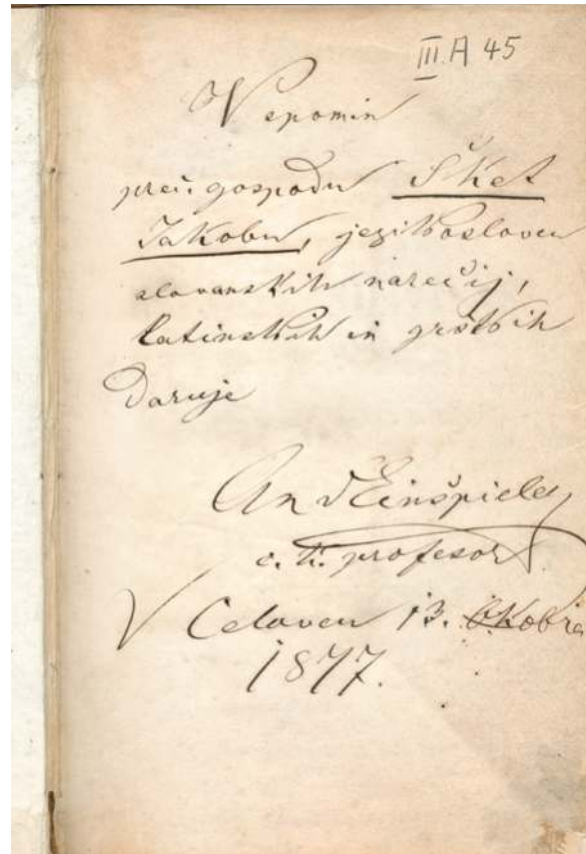 III. A 45
V spomin
preč. gospodu Šket
Jakobu, jezikoslovcu
slovanskih narečij,
latinskih in grških
daruje
And Einšpieler
c. k. profesor
V Celovcu 13. Okobra
1877.